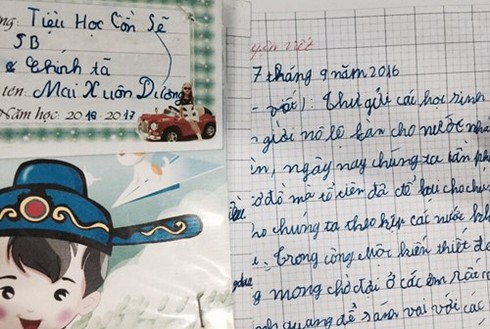 ng: Tiệu Học Còn Sẽ
5B
& Chính tả
tên: Mai Xuôn Dương
Năm học: 2016-2017
yện viết
7 tháng 9 năm 2016
viết): Thư gửi các học sinh
giời nô lệ bạn cho nước nhà
ngày nay chúng ta cần phả
đồ mà tổ tiên đã để lại cho chú
ho chúng ta theo kịp các nước
Trong công
g mong chờ đợi ở các em rất
quang để sánh vai với các